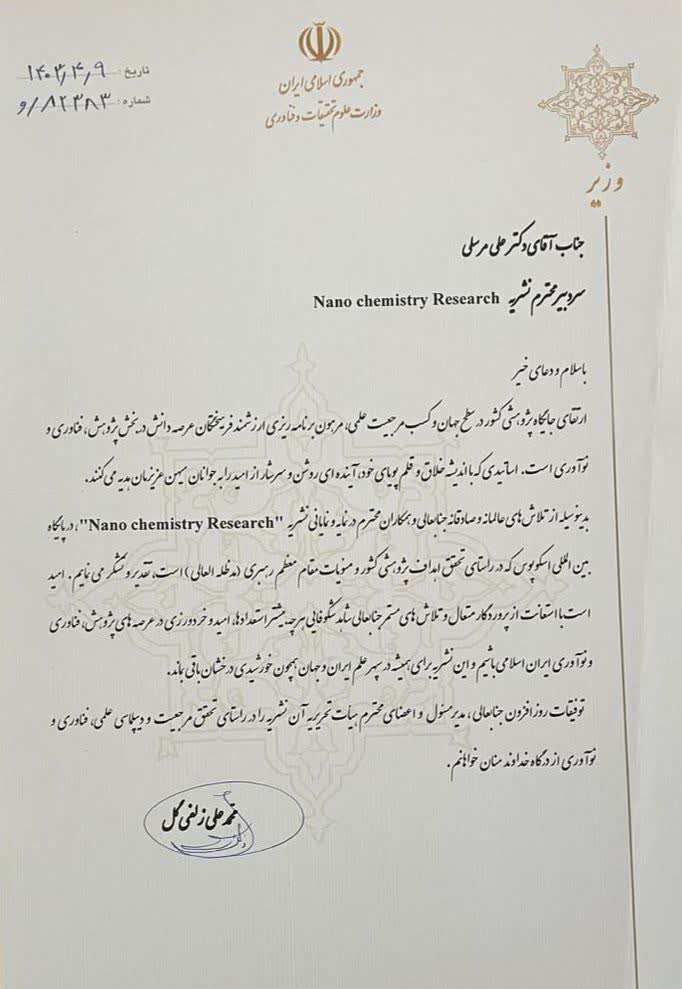 جمهوری اسلامی ایران
وزارت علوم تحقیقات و فناوری
تاریخ: ۱۴۰۳/۴/۹
شماره: ۸۲۳۸۳/و
وزیر
جناب آقای دکتر علی مرسلی
سردبیر محترم نشریه Nano chemistry Research
باسلام و دعای خیر
ارتقای جایگاه پژوهشی کشور در سطح جهان و کسب مرجعیت علمی، مرهون برنامه ریزی ارزشمند فریختگان عرصه دانش در بخش پژوهش، فناوری و
نوآوری است. اساتیدی که با اندیشه خلاق و قلم پویای خود، آینده ای روشن و سرشار از امید را به جوانان میهن عزیزمان هدیه می کنند.
بدینوسیله از تلاش های عالمانه و صادقانه جنابعالی و همکاران محترم در نمایه و نمایانی نشریه "Nano chemistry Research"، در پایگاه
بین المللی اسکوپوس که در راستای تحقق اهداف پژوهشی کشور و منویات مقام معظم رهبری (مدظله العالی) است، تقدیر و تشکر می نمایم. امید
است با استعانت از پروردگار متعال و تلاش های مستمر جنابعالی شاهد شکوفایی هرچه بیشتر استعدادها، امید و خردورزی در عرصه های پژوهش، فناوری
و نوآوری ایران اسلامی باشیم و این نشریه برای همیشه در سپهر علم ایران و جهان همچون خورشیدی درخشان باقی بماند.
توفیقات روز افزون جنابعالی، مدیر مسئول و اعضای محترم هیأت تحریریه آن نشریه را در راستای تحقق مرجعیت و دیپلماسی علمی، فناوری و
نوآوری از درگاه خداوند منان خواهانم.
محمد علی زلفی گل